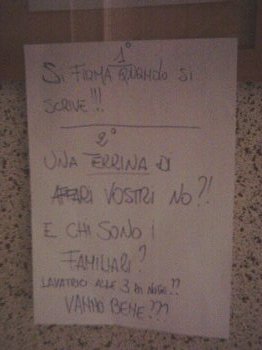 1°
SI FIRMA QUANDO SI
SCRIVE!!!
2°
UNA TERRINA DI
AFFARI VOSTRI NO?!
E CHI SONO I
FAMILIARI?
LAVATRICI ALLE 3 DI NOTTE??
VANNO BENE???